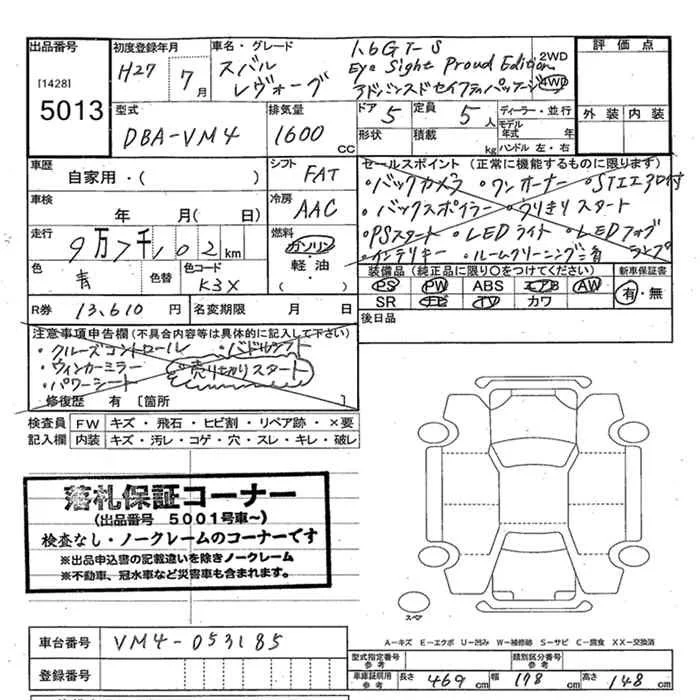 出品番号
[1428]
5013
初度登録年月
H27 7月
車名・グレード
スバル
レヴォーグ
1.6GT-S
Eye Sight Proud Edition
アドバンスドセイフティパッケージ
2WD
4WD
評価点
外装 内装
型式
DBA-VM4
排気量
1600 CC
ドア 5
定員 5人
形状
積載 kg
ディーラー・並行
モデル年式 年
ハンドル 左・右
車歴
自家用・( )
シフト
FAT
車検
年 月( 日)
冷房
AAC
走行
9万7千102km
燃料
ガソリン
軽油
( )
色
青
色替
色コード
K3X
R券 13,610円
名変期限 月 日
セールスポイント(正常に機能するものに限ります)
・バックカメラ ・ワンオーナー ・STIエアロ付
・バックスポイラー ・ウリきりスタート
・PSスタート ・LEDライト ・LEDフォグランプ
・インテリキー ・ルームクリーニング済
装備品(純正品に限り○をつけてください)
PS PW ABS エアB AW
SR ナビ TV カワ
新車保証書
有・無
後日品
注意事項申告欄(不具合内容等は具体的に記入して下さい)
・クルーズコントロール ・パドルシフト
・ウィンカーミラー ・売りきりスタート
・パワーシート
修復歴 有 [箇所 ]
検査員記入欄
FW キズ・飛石・ヒビ割・リペア跡・×要
内装 キズ・汚レ・コゲ・穴・スレ・キレ・破レ
落札保証コーナー
(出品番号 5001号車~)
検査なし・ノークレームのコーナーです
※出品申込書の記載違いを除きノークレーム
※不動車、冠水車など災害車も含まれます。
スペア
A-キズ E-エクボ U-凹み W-補修跡 S-サビ C-腐食 XX-交換済
車台番号 VM4-053185
登録番号
型式指定番号
参考
類別区分番号
参考
車庫証明用
参考
長さ 469cm 幅 178cm 高さ 148cm